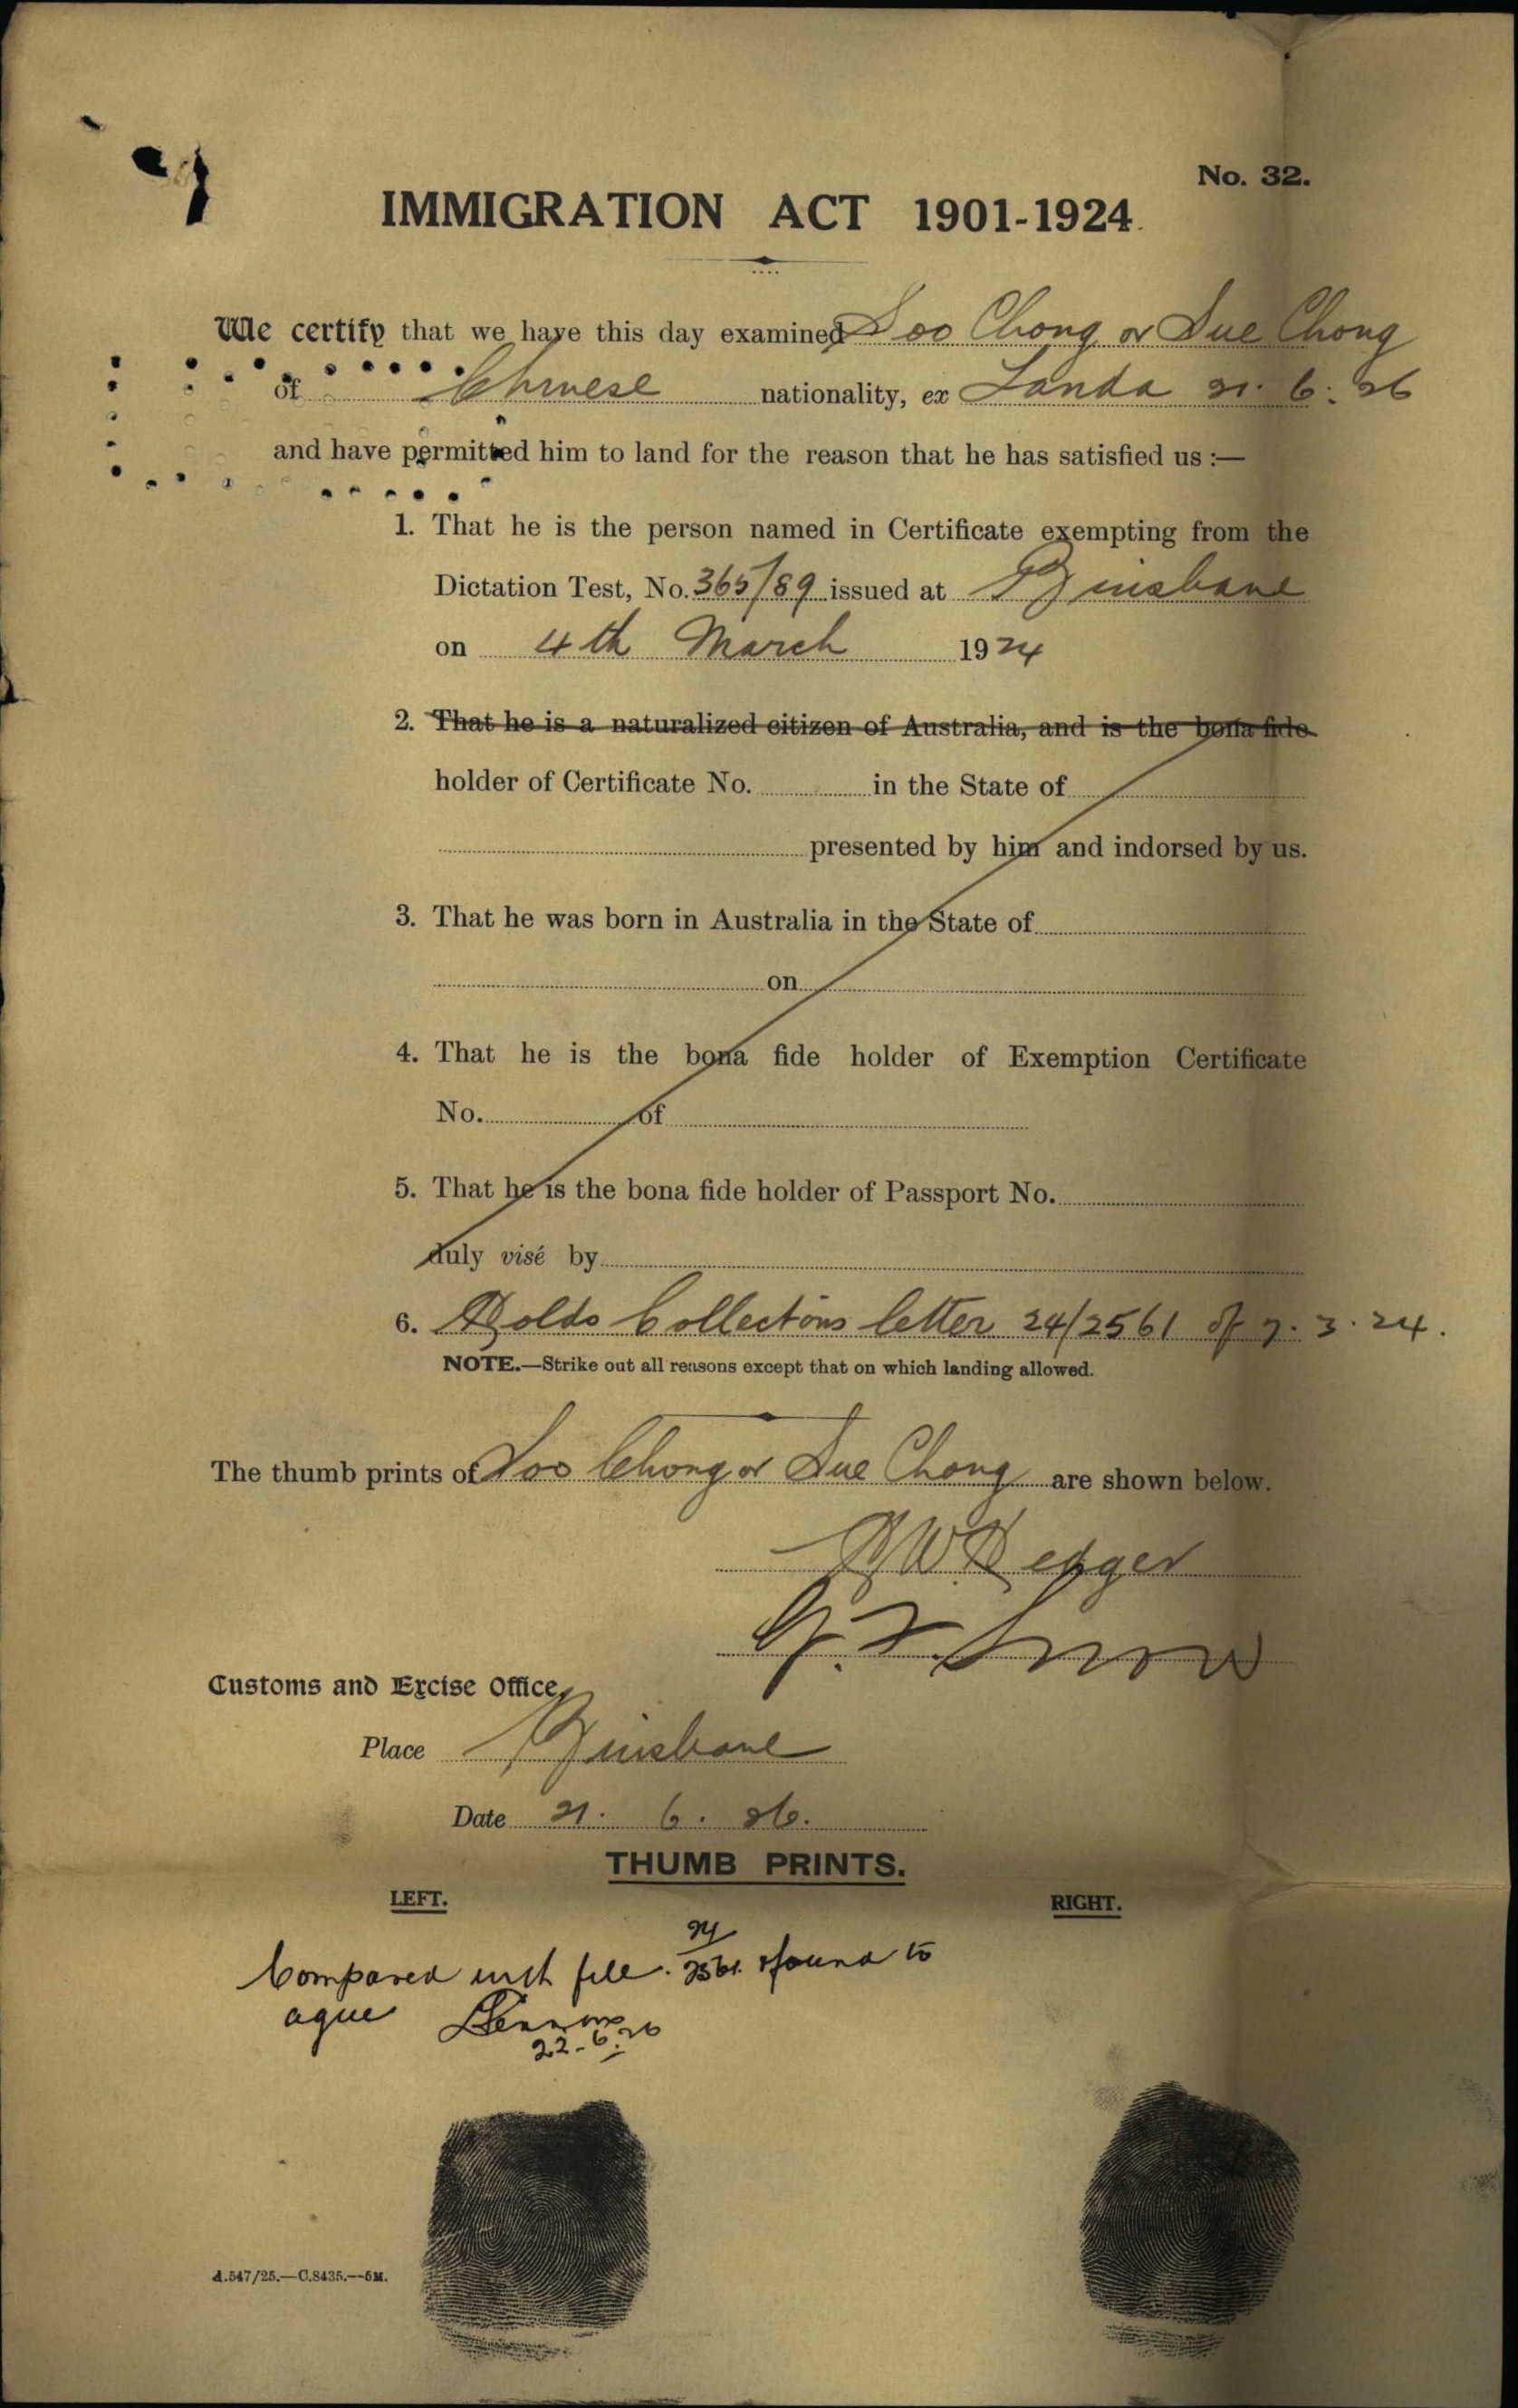 No. 32.
IMMIGRATION ACT 1901-1924.
We certify that we have this day examined Soo Chong or Sue Chong
of Chinese nationality, ex Tanda 21. 6. 26
and have permitted him to land for the reason that he has satisfied us :—
1. That he is the person named in Certificate exempting from the
Dictation Test, No. 365/89 issued at Brisbane
on 4th March 1924
2. That he is a naturalized citizen of Australia, and is the bona fide
holder of Certificate No. in the State of
presented by him and indorsed by us.
3. That he was born in Australia in the State of
on
4. That he is the bona fide holder of Exemption Certificate
No. of
5. That he is the bona fide holder of Passport No.
duly visé by
6. Holds Collectors letter 24/2561 of 7. 3. 24.
NOTE.—Strike out all reasons except that on which landing allowed.
The thumb prints of Soo Chong or Sue Chong are shown below.
Snow
Customs and Excise Office,
Place Brisbane
Date 21. 6. 26.
THUMB PRINTS.
LEFT. RIGHT.
24
Compared with file 2561 & found to
agree
22-6-26
A.547/25.—C.8435.—5M.